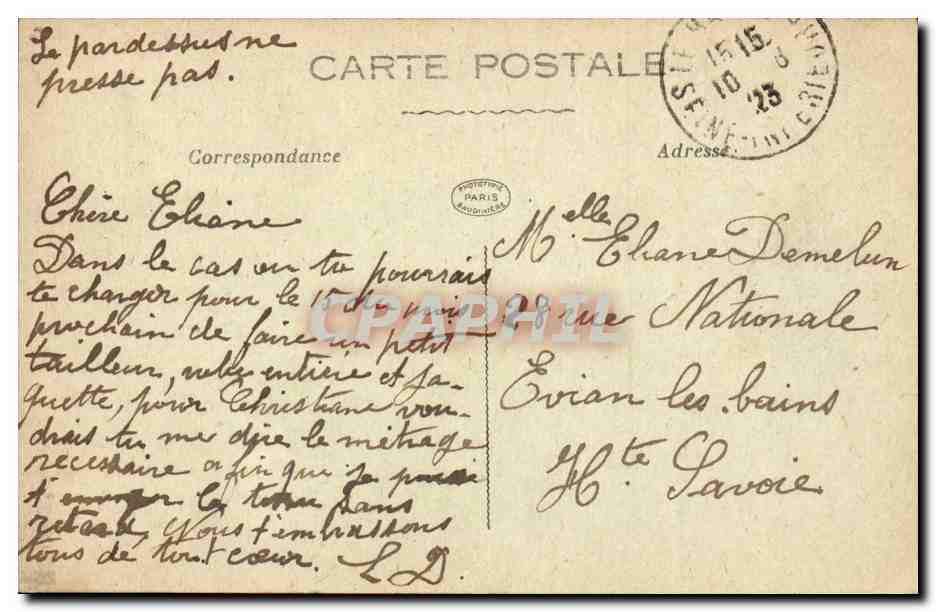 Le pardessus ne
presse pas.
CARTE POSTALE
15 15
10 3
23
SEINE-INFÉRIEURE
Correspondance
Adresse
PHOTOTYPIE
PARIS
BAUDINIÈRE
Chère Eliane
Dans le cas ou tu pourrais
te charger pour le 15 du mois
prochain de faire un petit
tailleur, robe entière et ja-
quette, pour Christiane vou-
drais tu me dire le métrage
necessaire afin que je puisse
t'envoyer le tissu sans
retard, Nous t'embrassons
tous de tout cœur. L D.
Melle Eliane Demelun
28 rue Nationale
Evian les bains
Hte Savoie
CPAPHIL